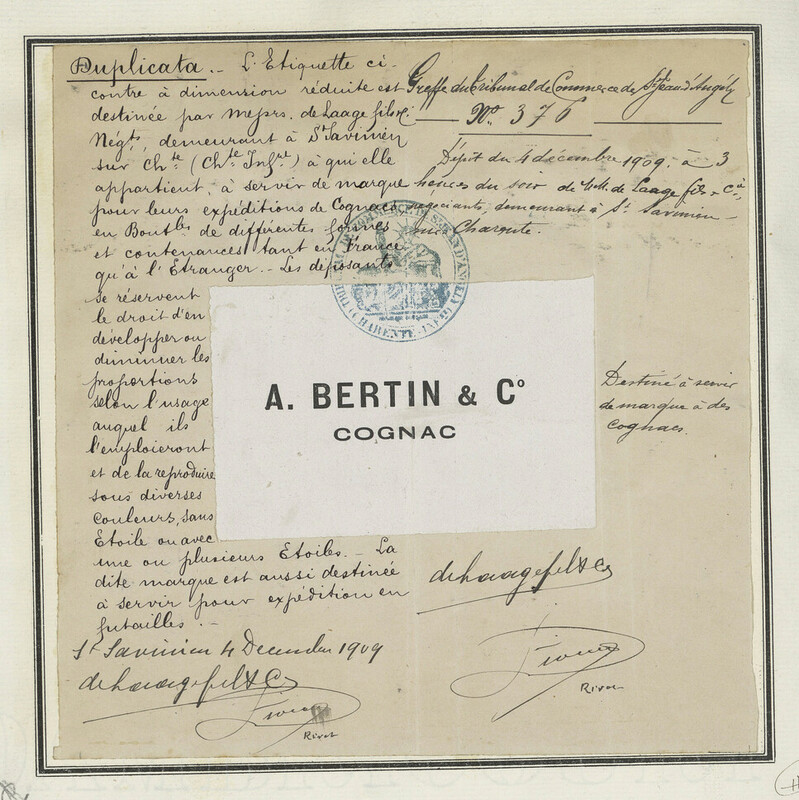 Duplicata. — L'Etiquette ci-
contre à dimension réduite est
destinée par Messrs. de Laage fils & Cie
Négts, demeurant à St Savinien
sur Chte (Chte Infre) à qui elle
appartient, à servir de marque
pour leurs expéditions de Cognacs
en Boutles de différentes formes
et contenances tant en France
qu'à l'Etranger. — Les déposants
se réservent
le droit d'en
développer ou
diminuer les
proportions
selon l'usage
auquel ils
l'emploieront
et de la reproduire
sous diverses
couleurs, sans
Etoile ou avec
une ou plusieurs Etoiles. — La
dite marque est aussi destinée
à servir pour expédition en
futailles. —
St Savinien 4 Decembre 1909
de Laage fils & Co
Rivet
Greffe du Tribunal de Commerce de St Jean d'Angély
No. 376
Dépôt du 4 décembre 1909. à 3
heures du soir de MM. de Laage fils & Cie,
négociants, demeurant à St Savinien
sur Charente.
TRIBUNAL DE COMMERCE DE ST JEAN D'ANGELY
(CHARENTE-INFRE)
A. BERTIN & Co
COGNAC
Destiné à servir
de marque à des
cognacs.
de Laage fils & Co
Rivet